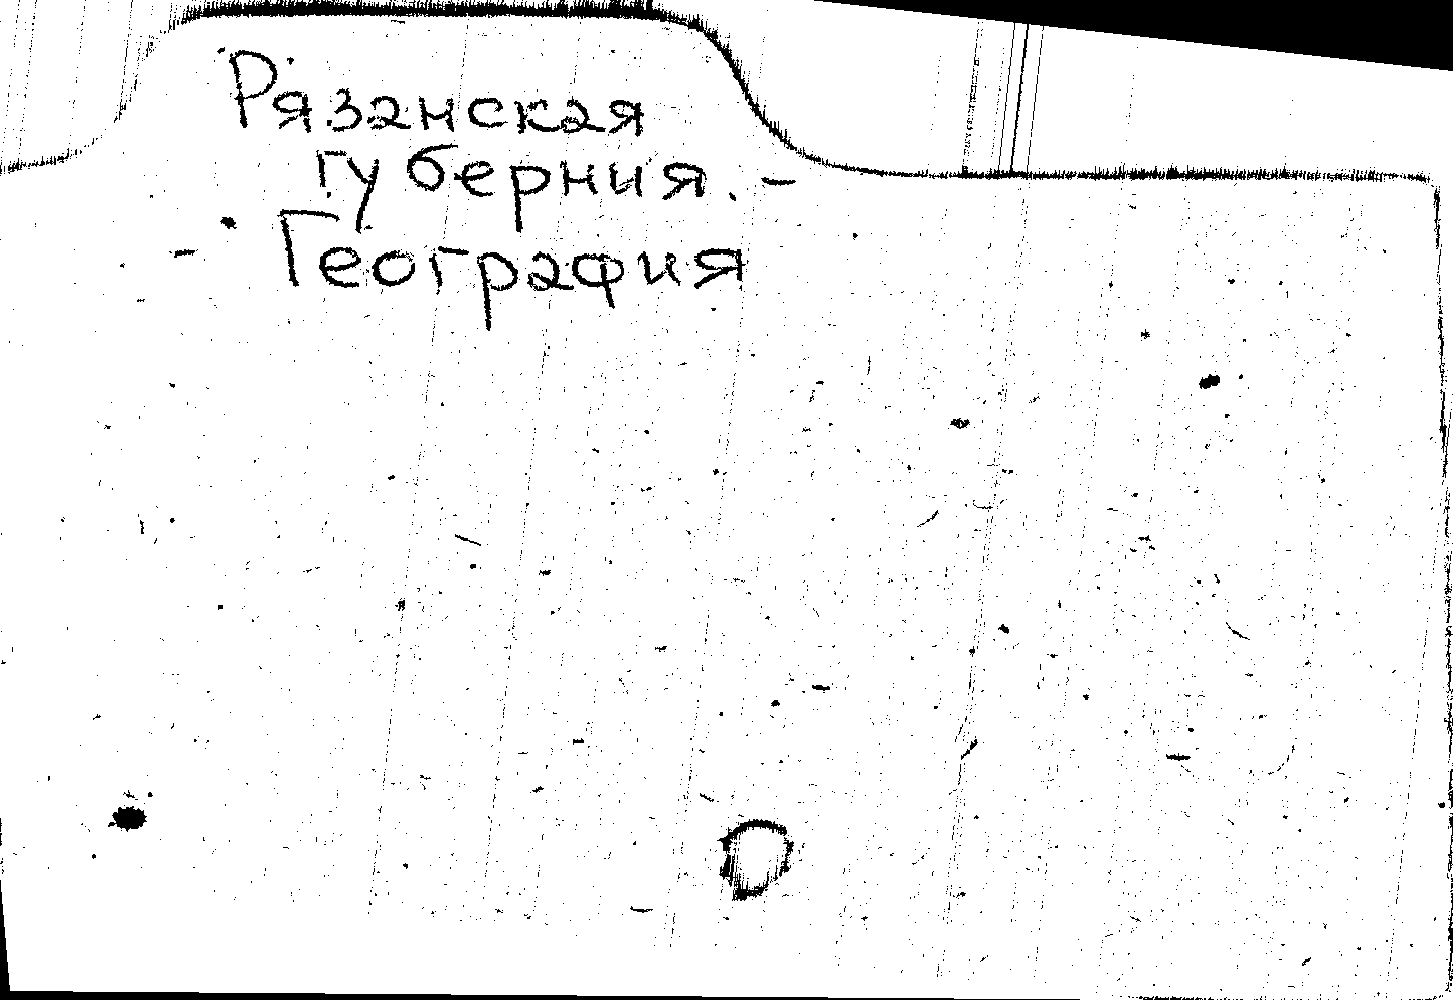 Рязанская
губерния. -
- География